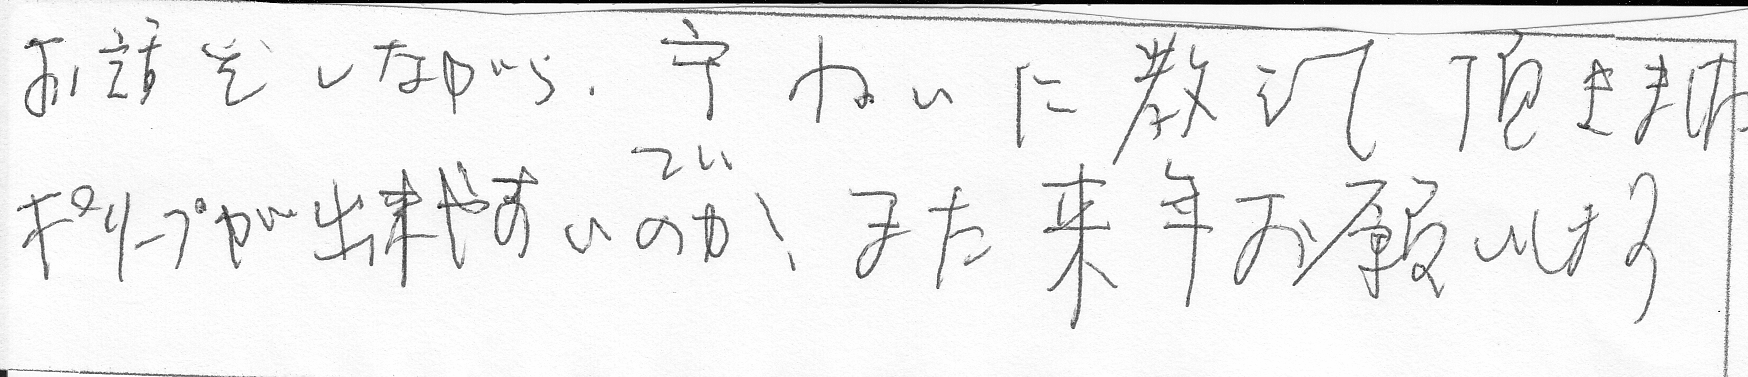 お話をしながら、丁ねいに教えて頂きました
ポリープが出来やすいのでいか、また来年お願いします